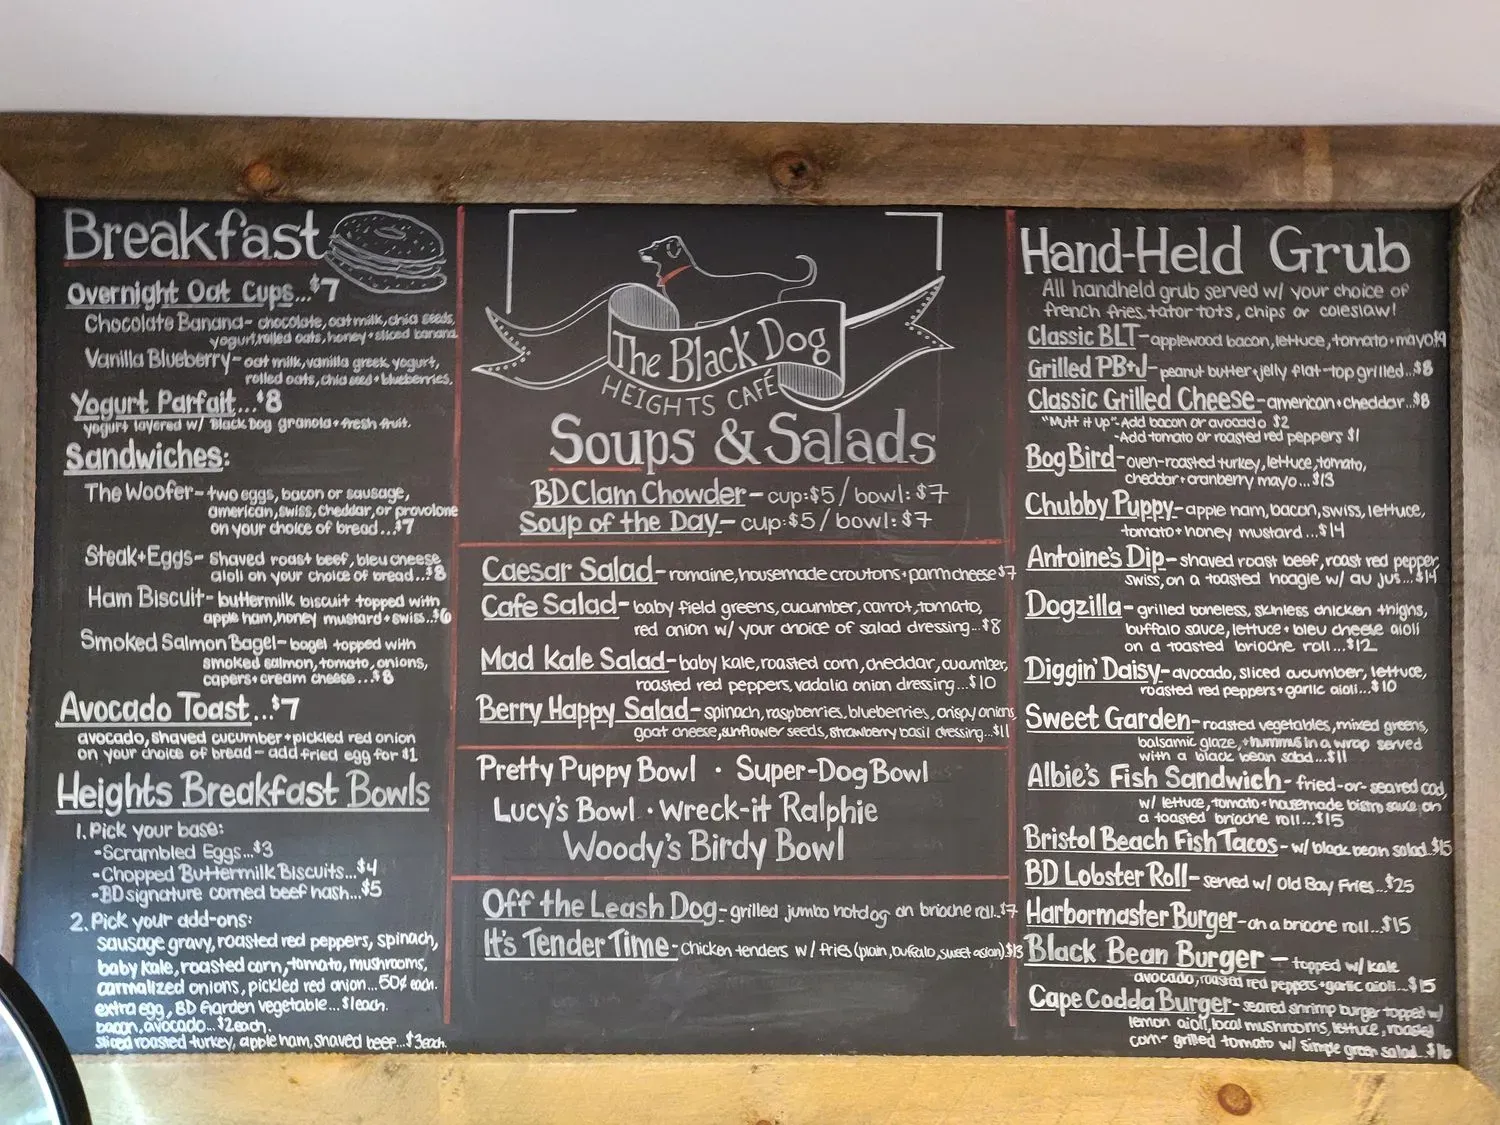 Breakfast
Overnight Oat Cups...$7
Chocolate Banana- chocolate, oat milk, chia seeds,
yogurt, rolled oats, honey + sliced banana
Vanilla Blueberry- oat milk, vanilla greek yogurt,
rolled oats, chia seed + blueberries.
Yogurt Parfait...$8
yogurt layered w/ Black Dog granola + fresh fruit.
Sandwiches:
The Woofer- two eggs, bacon or sausage,
american, swiss, cheddar, or provolone
on your choice of bread...$7
Steak+Eggs- shaved roast beef, bleu cheese
aioli on your choice of bread...$8
Ham Biscuit- buttermilk biscuit topped with
apple ham, honey mustard + swiss..$6
Smoked Salmon Bagel- bagel topped with
smoked salmon, tomato, onions,
capers + cream cheese...$8
Avocado Toast...$7
avocado, shaved cucumber + pickled red onion
on your choice of bread - add fried egg for $1
Heights Breakfast Bowls
1. Pick your base:
-Scrambled Eggs...$3
-Chopped Buttermilk Biscuits...$4
-BD signature corned beef hash...$5
2. Pick your add-ons:
sausage gravy, roasted red peppers, spinach,
baby kale, roasted corn, tomato, mushrooms,
carmalized onions, pickled red onion...50¢ each.
extra egg, BD Garden vegetable...$1each.
bacon, avocado...$2each.
sliced roasted turkey, apple ham, shaved beef...$3each.
The Black Dog
HEIGHTS CAFÉ
Soups & Salads
BD Clam Chowder- cup:$5/bowl:$7
Soup of the Day- cup:$5/bowl:$7
Caesar Salad- romaine, housemade croutons + parm cheese $7
Cafe Salad- baby field greens, cucumber, carrot, tomato,
red onion w/ your choice of salad dressing...$8
Mad Kale Salad- baby kale, roasted corn, cheddar, cucumber,
roasted red peppers, vadalia onion dressing...$10
Berry Happy Salad- spinach, raspberries, blueberries, crispy onions,
goat cheese, sunflower seeds, strawberry basil dressing...$11
Pretty Puppy Bowl · Super-Dog Bowl
Lucy's Bowl · Wreck-it Ralphie
Woody's Birdy Bowl
Off the Leash Dog- grilled jumbo hotdog on brioche roll..$7
It's Tender Time- chicken tenders w/ fries (plain, buffalo, sweet asian) $13
Hand-Held Grub
All handheld grub served w/ your choice of
french fries, tator tots, chips or coleslaw!
Classic BLT- applewood bacon, lettuce, tomato + mayo $9
Grilled PB+J- peanut butter + jelly flat-top grilled...$8
Classic Grilled Cheese- american + cheddar...$8
"Mutt it up"-Add bacon or avocado $2
-Add tomato or roasted red peppers $1
Bog Bird- oven-roasted turkey, lettuce, tomato,
cheddar + cranberry mayo...$13
Chubby Puppy- apple ham, bacon, swiss, lettuce,
tomato + honey mustard...$14
Antoine's Dip- shaved roast beef, roast red pepper,
swiss, on a toasted hoagie w/ au jus...$14
Dogzilla- grilled boneless, skinless chicken thighs,
buffalo sauce, lettuce + bleu cheese aioli
on a toasted brioche roll...$12
Diggin' Daisy- avocado, sliced cucumber, lettuce,
roasted red peppers + garlic aioli...$10
Sweet Garden- roasted vegetables, mixed greens,
balsamic glaze, + hummus in a wrap served
with a black bean salad...$11
Albie's Fish Sandwich- fried-or-seared cod,
w/ lettuce, tomato + housemade bistro sauce on
a toasted brioche roll...$15
Bristol Beach Fish Tacos- w/ black bean salad..$15
BD Lobster Roll- served w/ Old Bay Fries...$25
Harbormaster Burger- on a brioche roll...$15
Black Bean Burger - topped w/ kale
avocado, roasted red peppers + garlic aioli...$15
Cape Codda Burger- seared shrimp burger topped w/
lemon aioli, local mushrooms, lettuce, roasted
corn- grilled tomato w/ simple green salad...$16